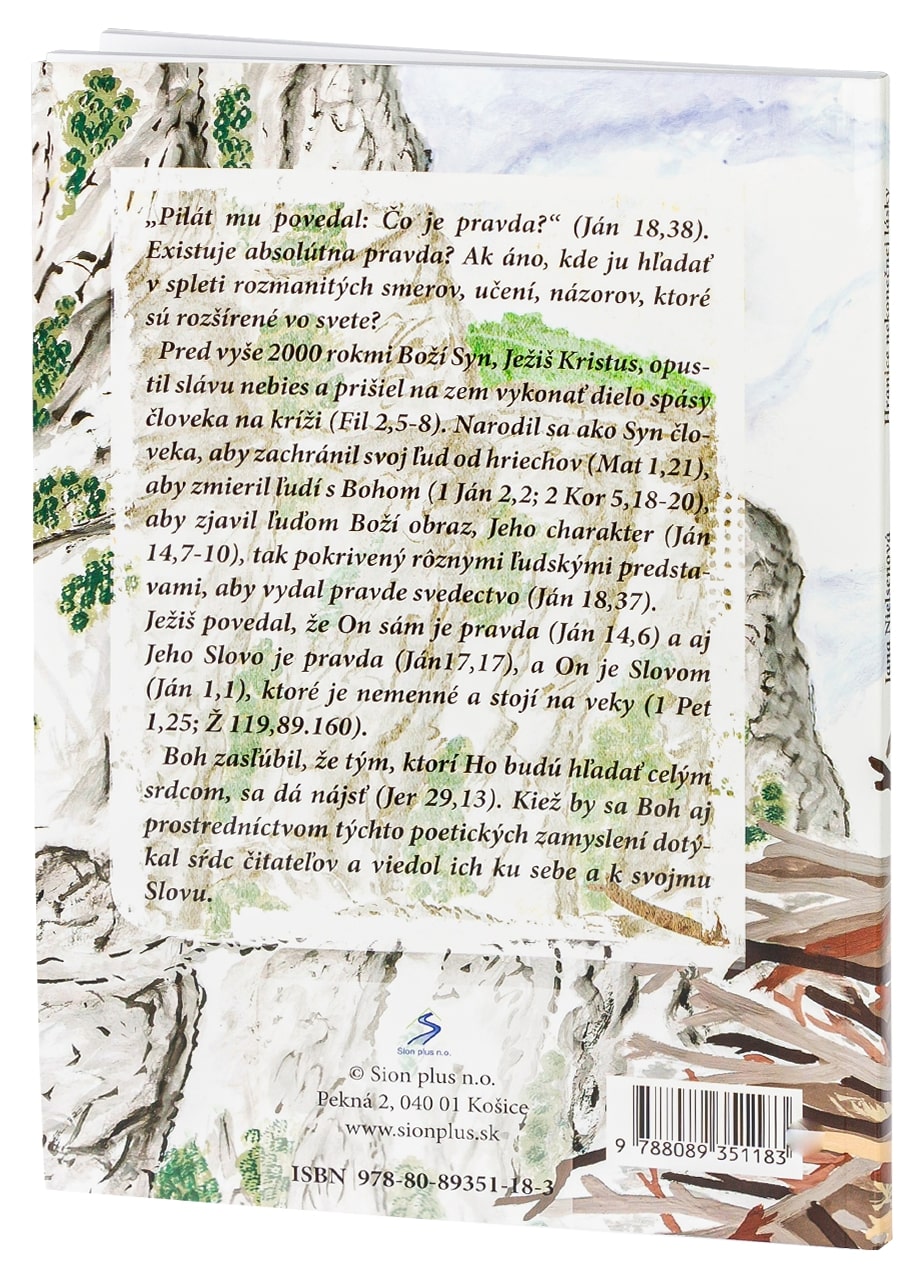 „Pilát mu povedal: Čo je pravda?“ (Ján 18,38).
Existuje absolútna pravda? Ak áno, kde ju hľadať
v spleti rozmanitých smerov, učení, názorov, ktoré
sú rozšírené vo svete?
Pred vyše 2000 rokmi Boží Syn, Ježiš Kristus, opus-
til slávu nebies a prišiel na zem vykonať dielo spásy
človeka na kríži (Fil 2,5-8). Narodil sa ako Syn člo-
veka, aby zachránil svoj ľud od hriechov (Mat 1,21),
aby zmieril ľudí s Bohom (1 Ján 2,2; 2 Kor 5,18-20),
aby zjavil ľuďom Boží obraz, Jeho charakter (Ján
14,7-10), tak pokrivený rôznymi ľudskými predsta-
vami, aby vydal pravde svedectvo (Ján 18,37).
Ježiš povedal, že On sám je pravda (Ján 14,6) a aj
Jeho Slovo je pravda (Ján17,17), a On je Slovom
(Ján 1,1), ktoré je nemenné a stojí na veky (1 Pet
1,25; Ž 119,89.160).
Boh zasľúbil, že tým, ktorí Ho budú hľadať celým
srdcom, sa dá nájsť (Jer 29,13). Kiež by sa Boh aj
prostredníctvom týchto poetických zamyslení dotý-
kal sŕdc čitateľov a viedol ich ku sebe a k svojmu
Slovu.
Sion plus n.o.
© Sion plus n.o.
Pekná 2, 040 01 Košice
www.sionplus.sk
ISBN 978-80-89351-18-3
9 788089 351183
Jana Nielsenová
nekonečnej lásky